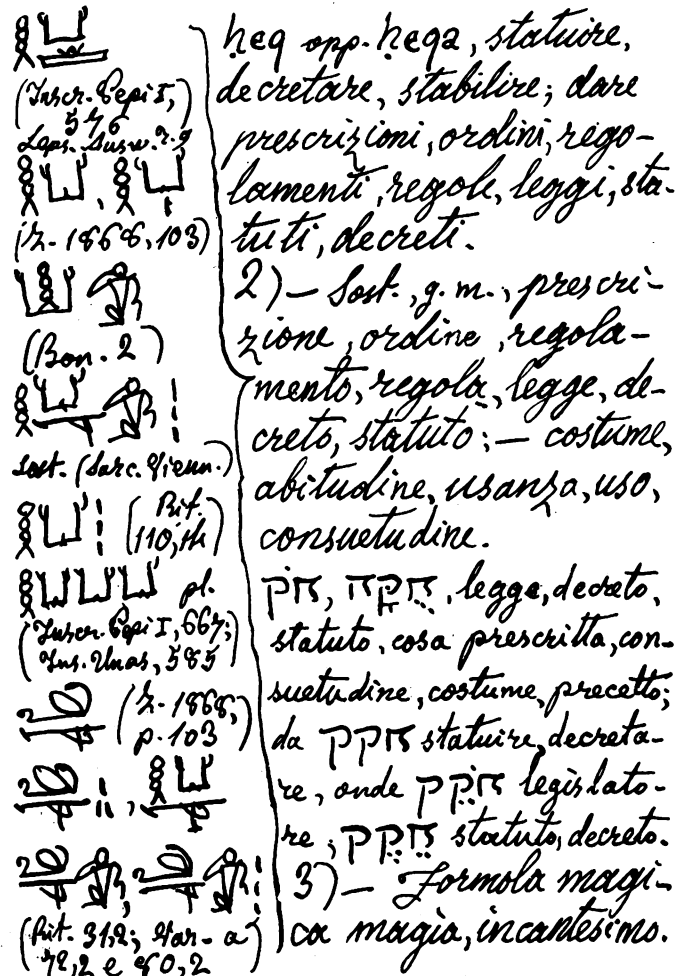 (Inscr. Pepi I,
576
Leps. Ausw. 2.9
(Z. 1868, 103)
(Bon. 2)
Sost. (Sarc. Vienn.)
(Rit.
110,14)
pl.
(Inscr. Pepi I, 667;
Ins. Unas, 585)
(Z. 1868,
p. 103
(Rit. 31,2; Var. a
72,2 e 80,2
ḥeq opp. ḥeqa, statuire,
decretare, stabilire; dare
prescrizioni, ordini, rego-
lamenti, regole, leggi, sta-
tuti, decreti.
2)— Sost., g. m., prescri-
zione, ordine, regola-
mento, regola, legge, de-
creto, statuto; — costume,
abitudine, usanza, uso,
consuetudine.
חֹק, חֻקָּה, legge, decreto,
statuto, cosa prescritta, con-
suetudine, costume, precetto;
da חקק statuire, decreta-
re, onde חֹקֵק legislato-
re; חֵקֶק statuto, decreto.
3)— Formola magi-
ca magia, incantesimo.